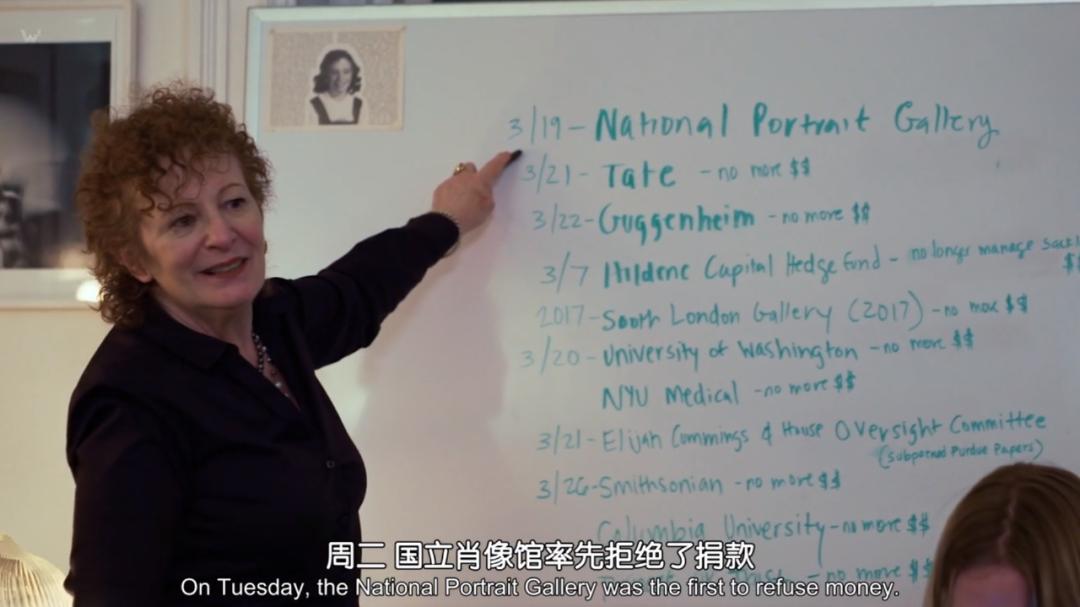 W
3/19 - National Portrait Gallery
3/21 - Tate - no more $$
3/22 - Guggenheim - no more $$
3/7 Hildene Capital Hedge Fund - no longer manage Sackl
$$
2017 - South London Gallery (2017) - no more $$
3/20 - University of Washington - no more $$
NYU Medical - no more $$
3/21 - Elijah Cummings & House Oversight Committee
(subpoenaed Purdue Papers)
3/26 - Smithsonian - no more $$
Columbia University - no more $$
- no more $$
周二 国立肖像馆率先拒绝了捐款
On Tuesday, the National Portrait Gallery was the first to refuse money.